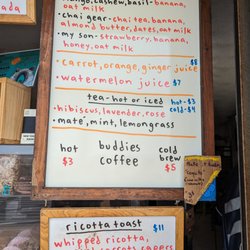 mango, cashew, basil-banana,
oat milk
• chai gear-chai tea, banana,
almond butter, dates, oat milk
• my son-strawberry, banana,
honey, oat milk
• carrot, orange, ginger juice $8
• watermelon juice $7
tea-hot or iced hot-$3
• hibiscus, lavender, rose cold-$4
• mate', mint, lemongrass
hot buddies cold
$3 coffee brew
$5
ricotta toast $11
whipped ricotta,